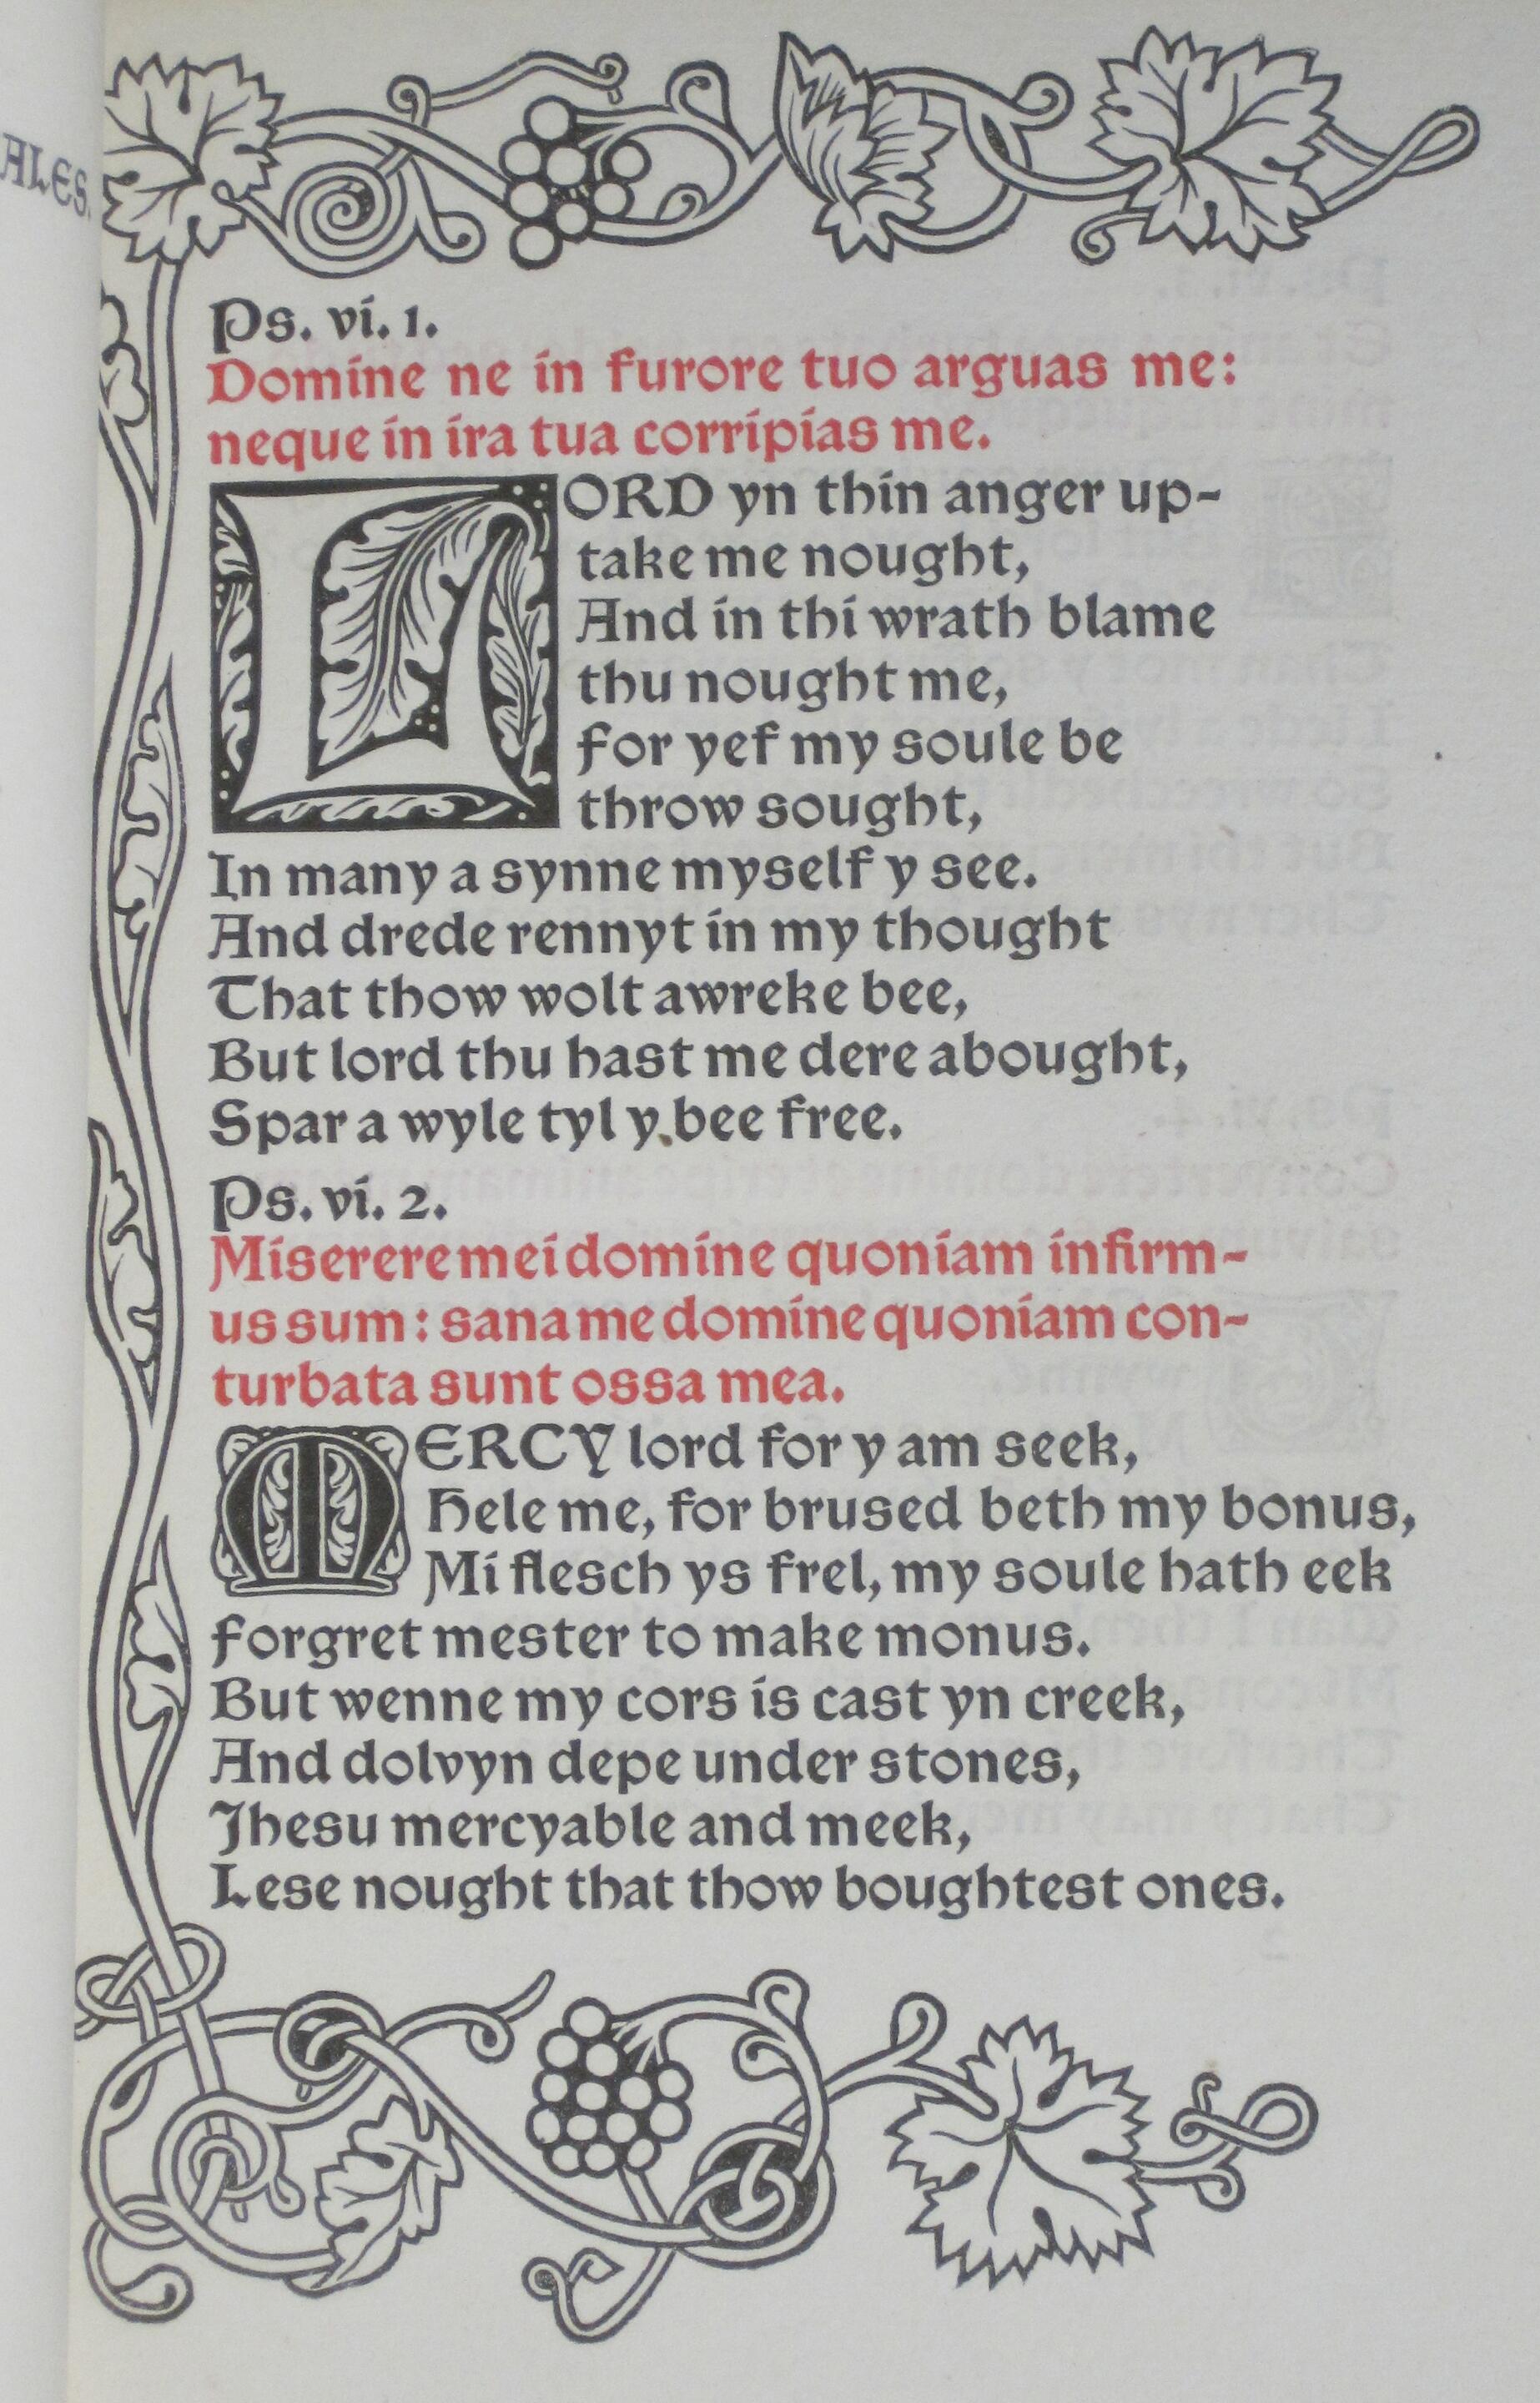 ALES.
Ps. vi. 1.
Domine ne in furore tuo arguas me:
neque in ira tua corripias me.
LORD yn thin anger up-
take me nought,
And in thi wrath blame
thu nought me,
For yef my soule be
throw sought,
In many a synne myself y see.
And drede rennyt in my thought
That thow wolt awreke bee,
But lord thu hast me dere abought,
Spar a wyle tyl y bee free.
Ps. vi. 2.
Miserere mei domine quoniam infirm-
us sum: sana me domine quoniam con-
turbata sunt ossa mea.
MERCY lord for y am seek,
Hele me, for brused beth my bonus,
Mi flesch ys frel, my soule hath eek
Forgret mester to make monus.
But wenne my cors is cast yn creek,
And dolvyn depe under stones,
Jhesu mercyable and meek,
Lese nought that thow boughtest ones.